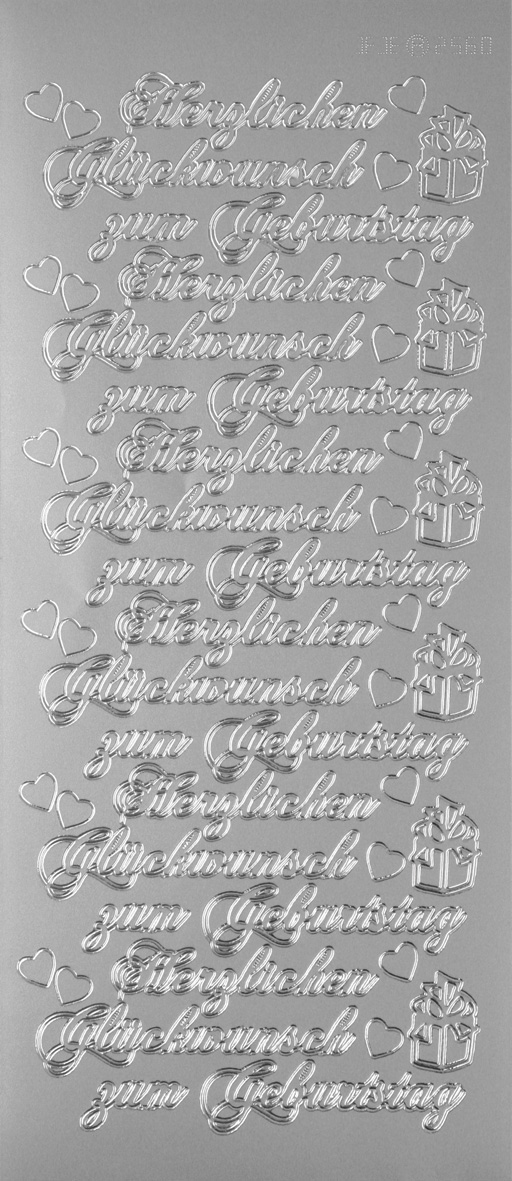 JEJE® 2560
Herzlichen
Glückwunsch
zum Geburtstag
Herzlichen
Glückwunsch
zum Geburtstag
Herzlichen
Glückwunsch
zum Geburtstag
Herzlichen
Glückwunsch
zum Geburtstag
Herzlichen
Glückwunsch
zum Geburtstag
Herzlichen
Glückwunsch
zum Geburtstag